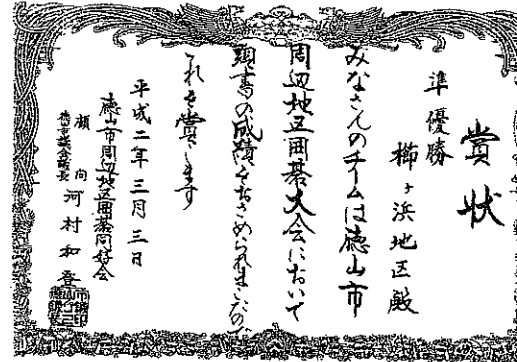 賞状
準優勝
櫛ヶ浜地区殿
みなさんのチームは徳山市
周辺地区囲碁大会において
頭書の成績をおさめられましたので
これを賞します
平成二年三月三日
徳山市周辺地区囲碁同好会
顧問
河村和登